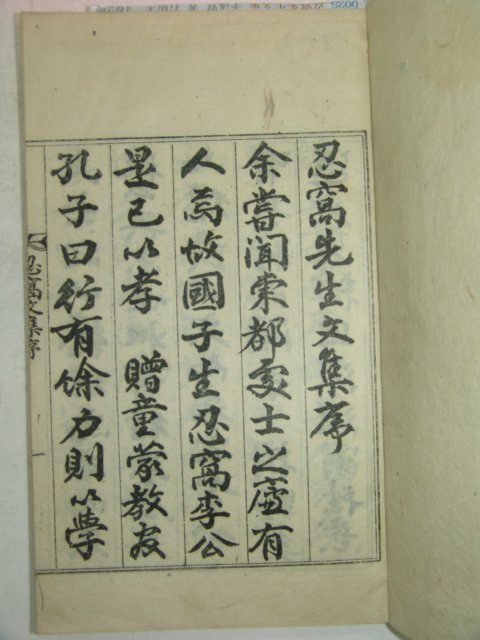 忍窩先生文集序
余嘗聞東都處士之廬有
人焉故國子生忍窩李公
是已以孝 贈童蒙教官
孔子曰行有餘力則以學
忍窩文集序
0025